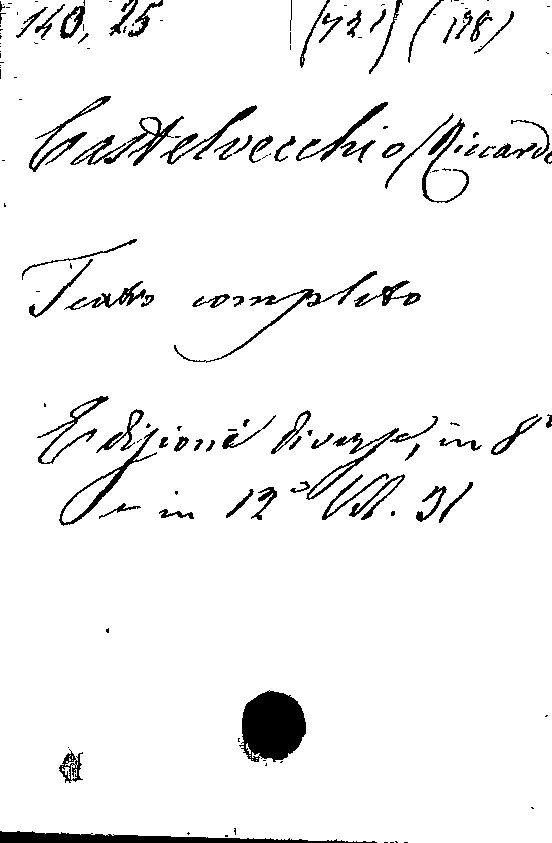 140, 25 (721) (128)
Castelvecchio (Riccardo
Teatro completo
Edizioni diverse, in 8°
e in 12° Vol. 31